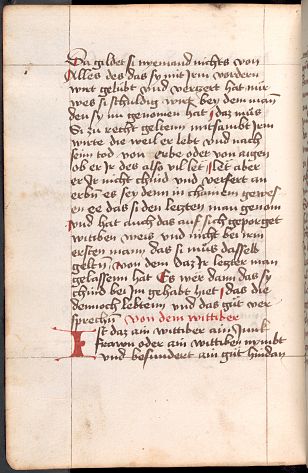 Da gildet si nyemand nichts von
Alles des das sy mit Irm vordern
wirt gelubt vnd verzert hat nur
wes si schuldig wirt bey dem man
den sy nu genomen hat Daz mus
Si zu recht geltem mitsambt Irm
wirte die weil er lebt vnd nach
seim tod von erbe oder von aigen
ob er Ir des also vil let let aber
er Ir nicht erbund vnd versert an
erbn es sey denn in chainem gewes
en ee das si den letzten man genom
vnd hat auch das auf sich geporget
wittiben weis vnd nicht bei irm
ersten mann das si mus dasselb
geltn von dem daz Ir letzter man
gelassenn hat Es wer dann das sy
chind bei Im gehabt hiet das die
dennoch lebtenn vnd das gut ver
sprechn von dem wittiber
Ist daz ain wittiber ain Junk
frawn oder ain wittiben nymbt
vnd besundert ain gut hindan